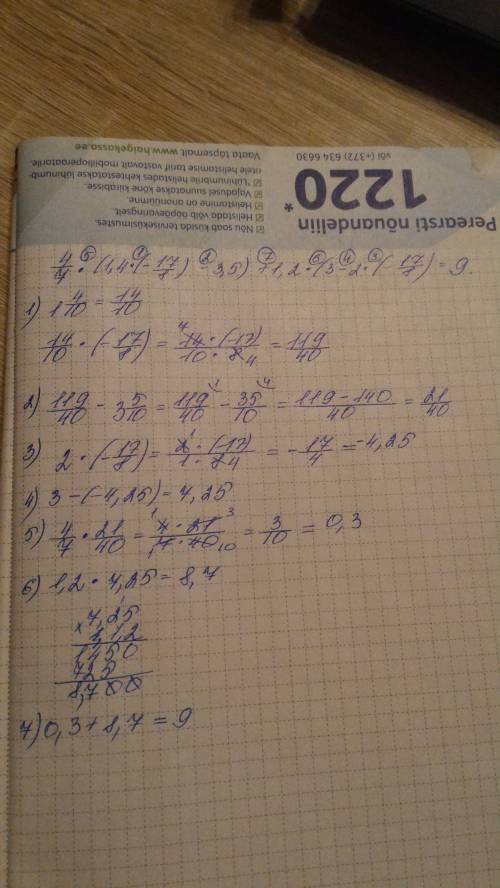 Perearsti nõuandeliin
1220*
või (+372) 634 6630
Nõu saab küsida terviseküsimustes.
Helistada võib ööpäevaringselt.
Helistamine on anonüümne.
Vajadusel suunatakse kõne kiirabisse.
Lühinumbrile helistades kehtestatakse lühinumb-
ritele helistamise tariif vastavalt mobiilioperaatorile.
Vaata täpsemalt www.haigekassa.ee
4/7 ⑤· (1,4 ①· (-17/8) ②- 3,5) ⑦+ 1,2 ⑥· (3 ④- 2 ③· (-17/8) = 9.
1) 1 4/10 = 14/10
14/10 · (-17/8) = 14 · (-17)/10 · 8 = 119/40
2) 119/40 - 3 5/10 = 119/40 - 35/10 = 119 - 140/40 = 21/40
3) 2 · (-17/8) = 2 · (-17)/1 · 8 = -17/4 = -4,25
4) 3 - (-4,25) = 7,25
5) 4/7 · 21/40 = 4 · 21/7 · 40 = 3/10 = 0,3
6) 1,2 · 7,25 = 8,7
× 7,25
1,2
1450
725
8,700
7) 0,3 + 8,7 = 9